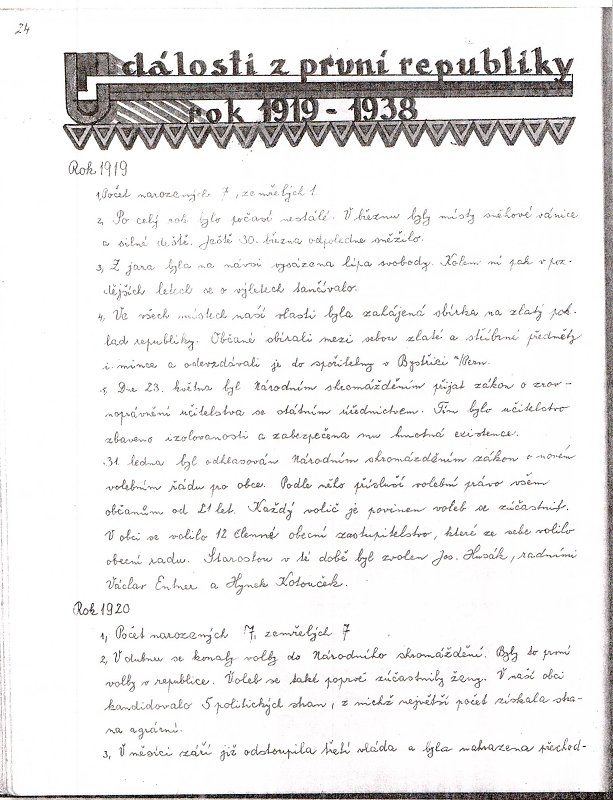 24
Události z první republiky
rok 1919 - 1938
Rok 1919
1, Počet narozených 7, zemřelých 1
2, Po celý rok bylo počasí nestálé. V březnu byly místy sněhové vánice
a silné deště. Ještě 30. března odpoledne sněžilo.
3, Z jara byla na návsi vysázena lípa svobody. Kolem ní pak v poz-
dějších letech se o výletech tančívalo.
4, Ve všech místech naší vlasti byla zahájena sbírka na zlatý pok-
lad republiky. Občané sbírali mezi sebou zlaté a stříbrné předměty
i mince a odevzdávali je do spořitelny v Bystřici n/Pern.
5, Dne 23. května byl Národním shromážděním přijat zákon o zrov-
noprávnění učitelstva se státním úřednictvem. Tím bylo učitelstvo
zbaveno izolovanosti a zabezpečena mu hmotná existence.
31. ledna byl odhlasován Národním shromážděním zákon o novém
volebním řádu pro obce. Podle něho přísluší volební právo všem
občanům od 21 let. Každý volič je povinen voleb se zúčastnit.
V obci se volilo 12 členné obecní zastupitelstvo, které ze sebe volilo
obecní radu. Starostou v té době byl zvolen Jos. Husák, radními
Václav Entner a Hynek Kotouček.
Rok 1920
1, Počet narozených 7, zemřelých 7
2, V dubnu se konaly volby do Národního shromáždění. Byly to první
volby v republice. Voleb se také poprvé zúčastnily ženy. V naší obci
kandidovalo 5 politických stran, z nichž největší počet získala stra-
na agrární.
3, V měsíci září již odstoupila třetí vláda a byla nahrazena přechod-